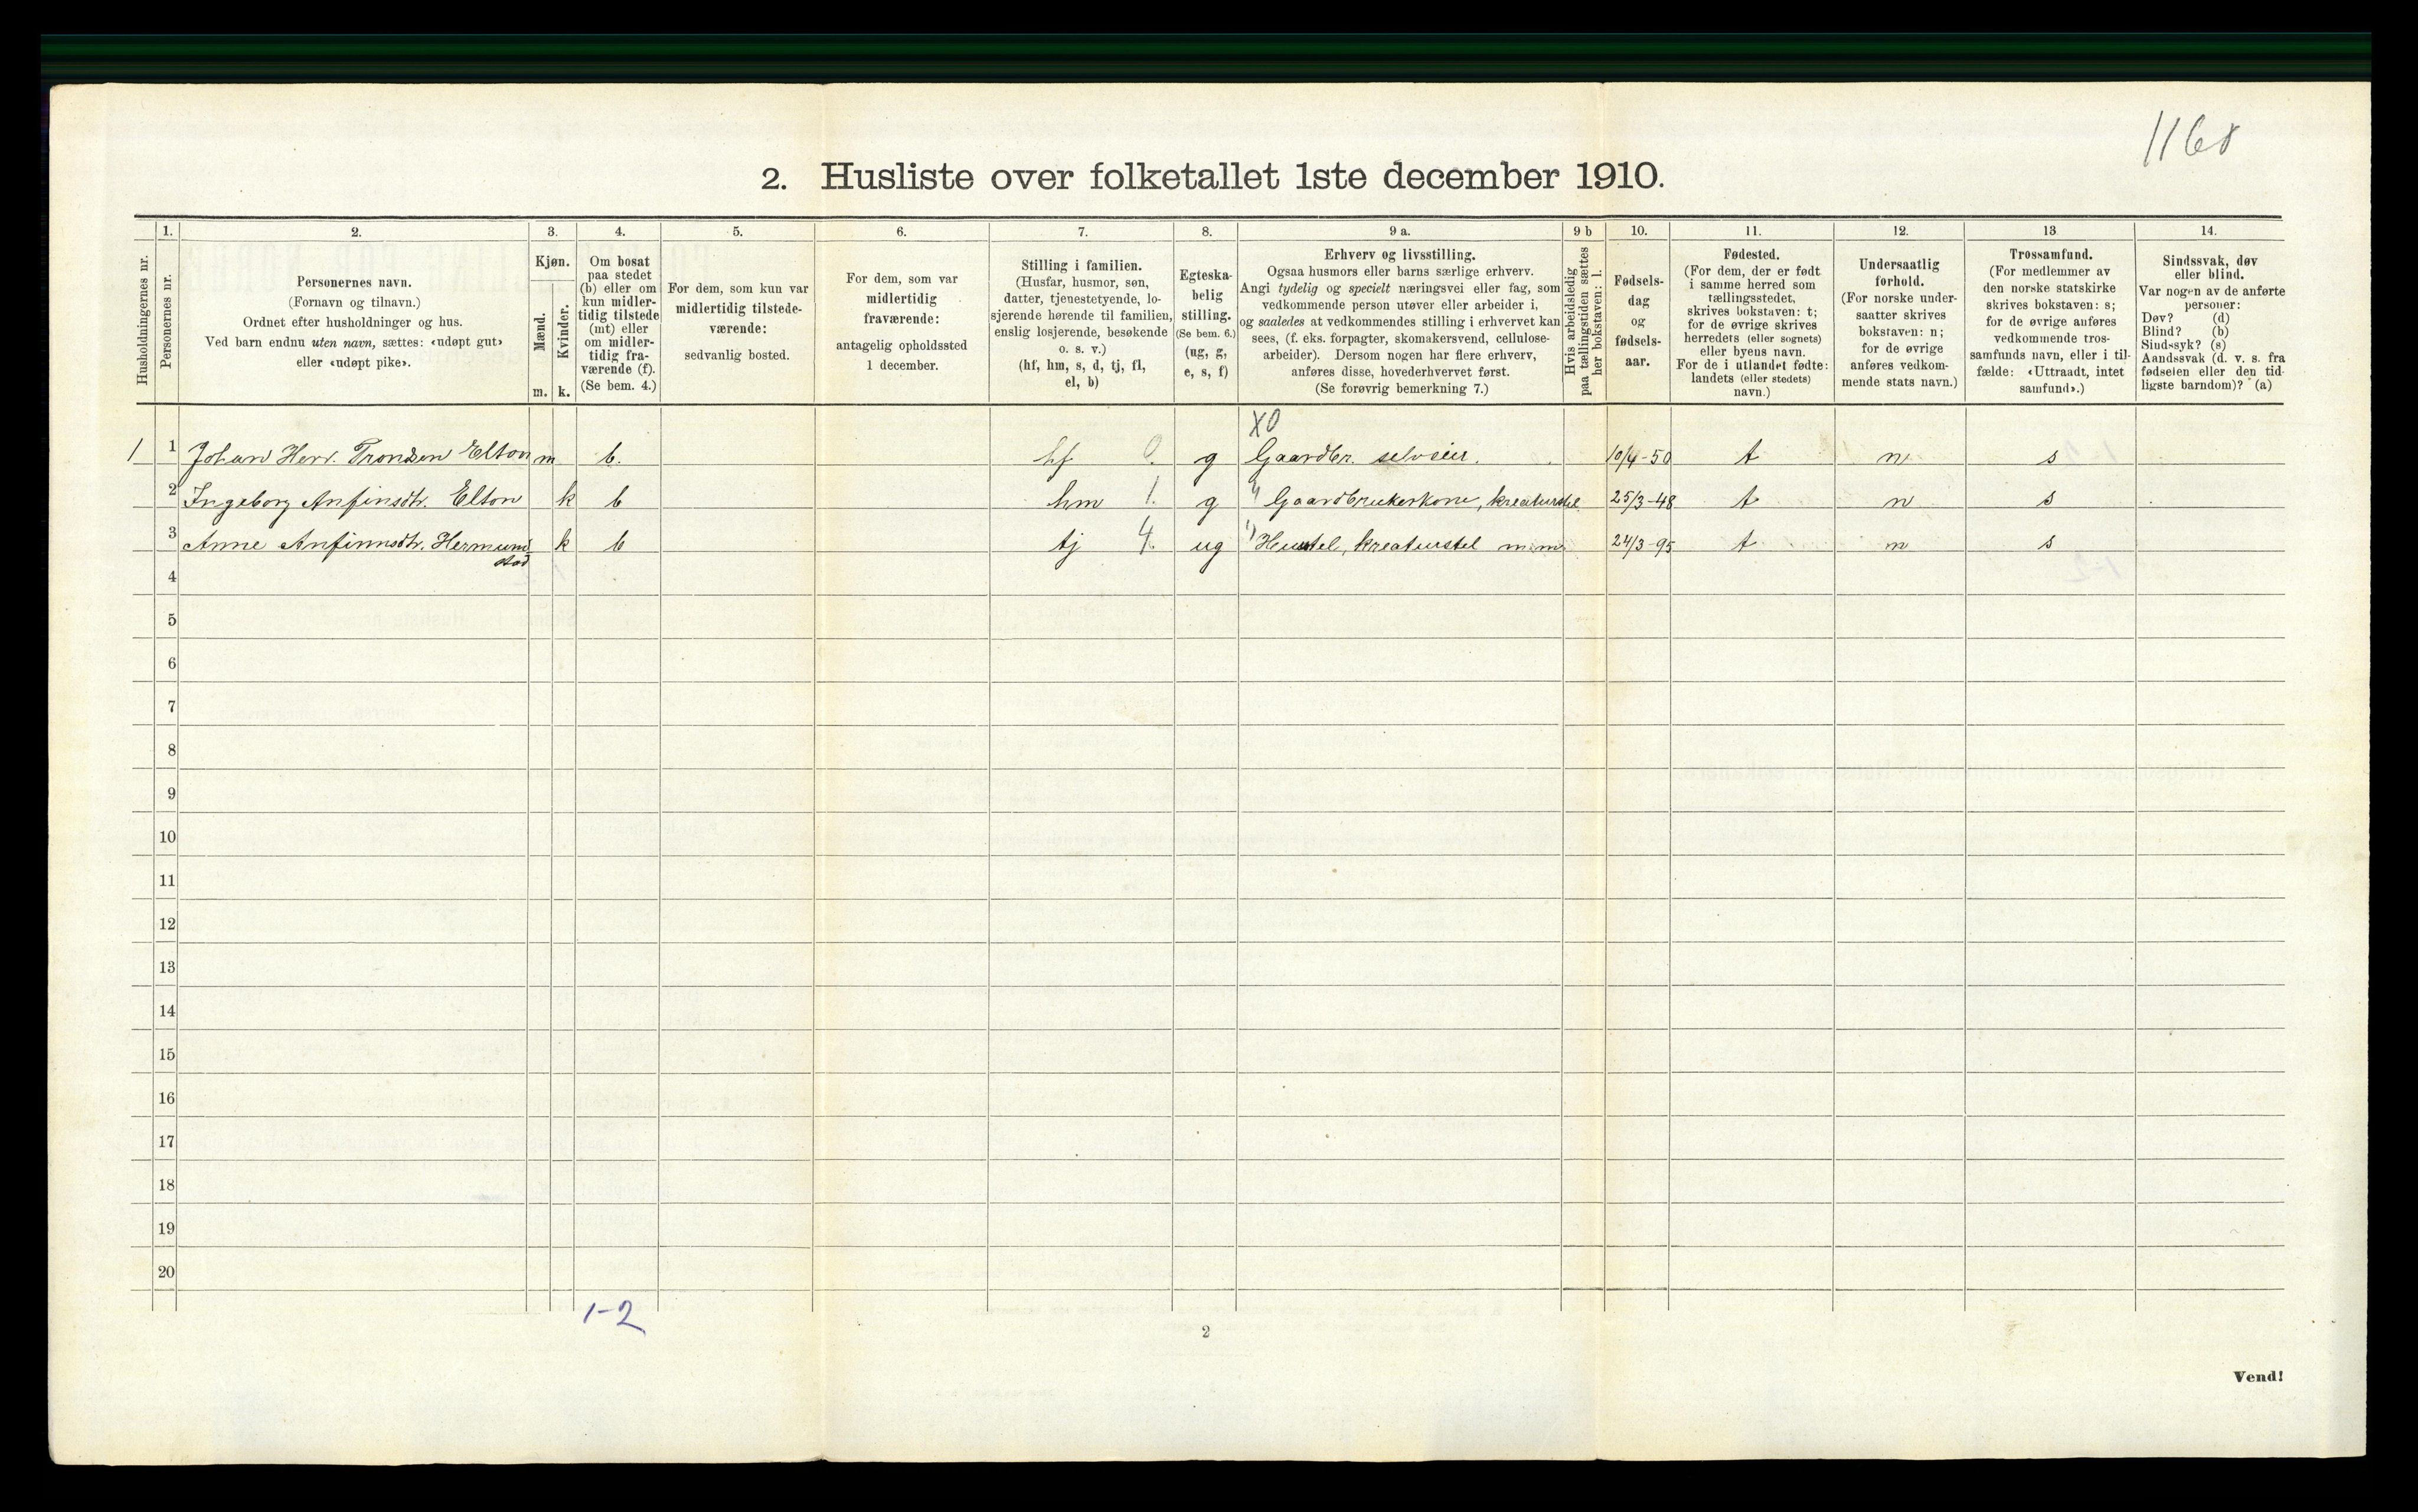 1168
2. Husliste over folketallet 1ste december 1910.
Husholdningernes nr.
1. Personernes nr.
2. Personernes navn.
(Fornavn og tilnavn.)
Ordnet efter husholdninger og hus.
Ved barn endnu uten navn, sættes: «udøpt gut»
eller «udøpt pike».
3. Kjøn.
Mænd. m.
Kvinder. k.
4. Om bosat
paa stedet
(b) eller om
kun midler-
tidig tilstede
(mt) eller
om midler-
tidig fra-
værende (f).
(Se bem. 4.)
5. For dem, som kun var
midlertidig tilstede-
værende:
sedvanlig bosted.
6. For dem, som var
midlertidig
fraværende:
antagelig opholdssted
1 december.
7. Stilling i familien.
(Husfar, husmor, søn,
datter, tjenestetyende, lo-
sjerende hørende til familien,
enslig losjerende, besøkende
o. s. v.)
(hf, hm, s, d, tj, fl,
el, b)
8. Egteska-
belig
stilling.
(Se bem. 6.)
(ug, g,
e, s, f)
9 a. Erhverv og livsstilling.
Ogsaa husmors eller barns særlige erhverv.
Angi tydelig og specielt næringsvei eller fag, som
vedkommende person utøver eller arbeider i,
og saaledes at vedkommendes stilling i erhvervet kan
sees, (f. eks. forpagter, skomakersvend, cellulose-
arbeider). Dersom nogen har flere erhverv,
anføres disse, hovederhvervet først.
(Se forøvrig bemerkning 7.)
9 b Hvis arbeidsledig
paa tællingstiden sættes
her bokstaven: l.
10. Fødsels-
dag
og
fødsels-
aar.
11. Fødested.
(For dem, der er født
i samme herred som
tællingsstedet,
skrives bokstaven: t;
for de øvrige skrives
herredets (eller sognets)
eller byens navn.
For de i utlandet fødte:
landets (eller stedets)
navn.)
12. Undersaatlig
forhold.
(For norske under-
saatter skrives
bokstaven: n;
for de øvrige
anføres vedkom-
mende stats navn.)
13 Trossamfund.
(For medlemmer av
den norske statskirke
skrives bokstaven: s;
for de øvrige anføres
vedkommende tros-
samfunds navn, eller i til-
fælde: «Uttraadt, intet
samfund».)
14. Sindssvak, døv
eller blind.
Var nogen av de anførte
personer:
Døv? (d)
Blind? (b)
Sindssyk? (s)
Aandssvak (d. v. s. fra
fødselen eller den tid-
ligste barndom)? (a)
X0
1 1 Johan Herr. Trondsen Elton m b. hf 0. g Gaardbr. selveier. 10/4-50 t n s
2 Ingeborg Anfinsdtr. Elton k b hm 1. g " Gaardbrukerkone, kreaturstel 25/3-48 t n s
3 Anne Anfinnsdtr. Hermund k b tj 4. ug Husstel, kreaturstel m.m. 24/3-95 t n s
stad
4
5
6
7
8
9
10
11
12
13
14
15
16
17
18
19
20
1-2
2
Vend!